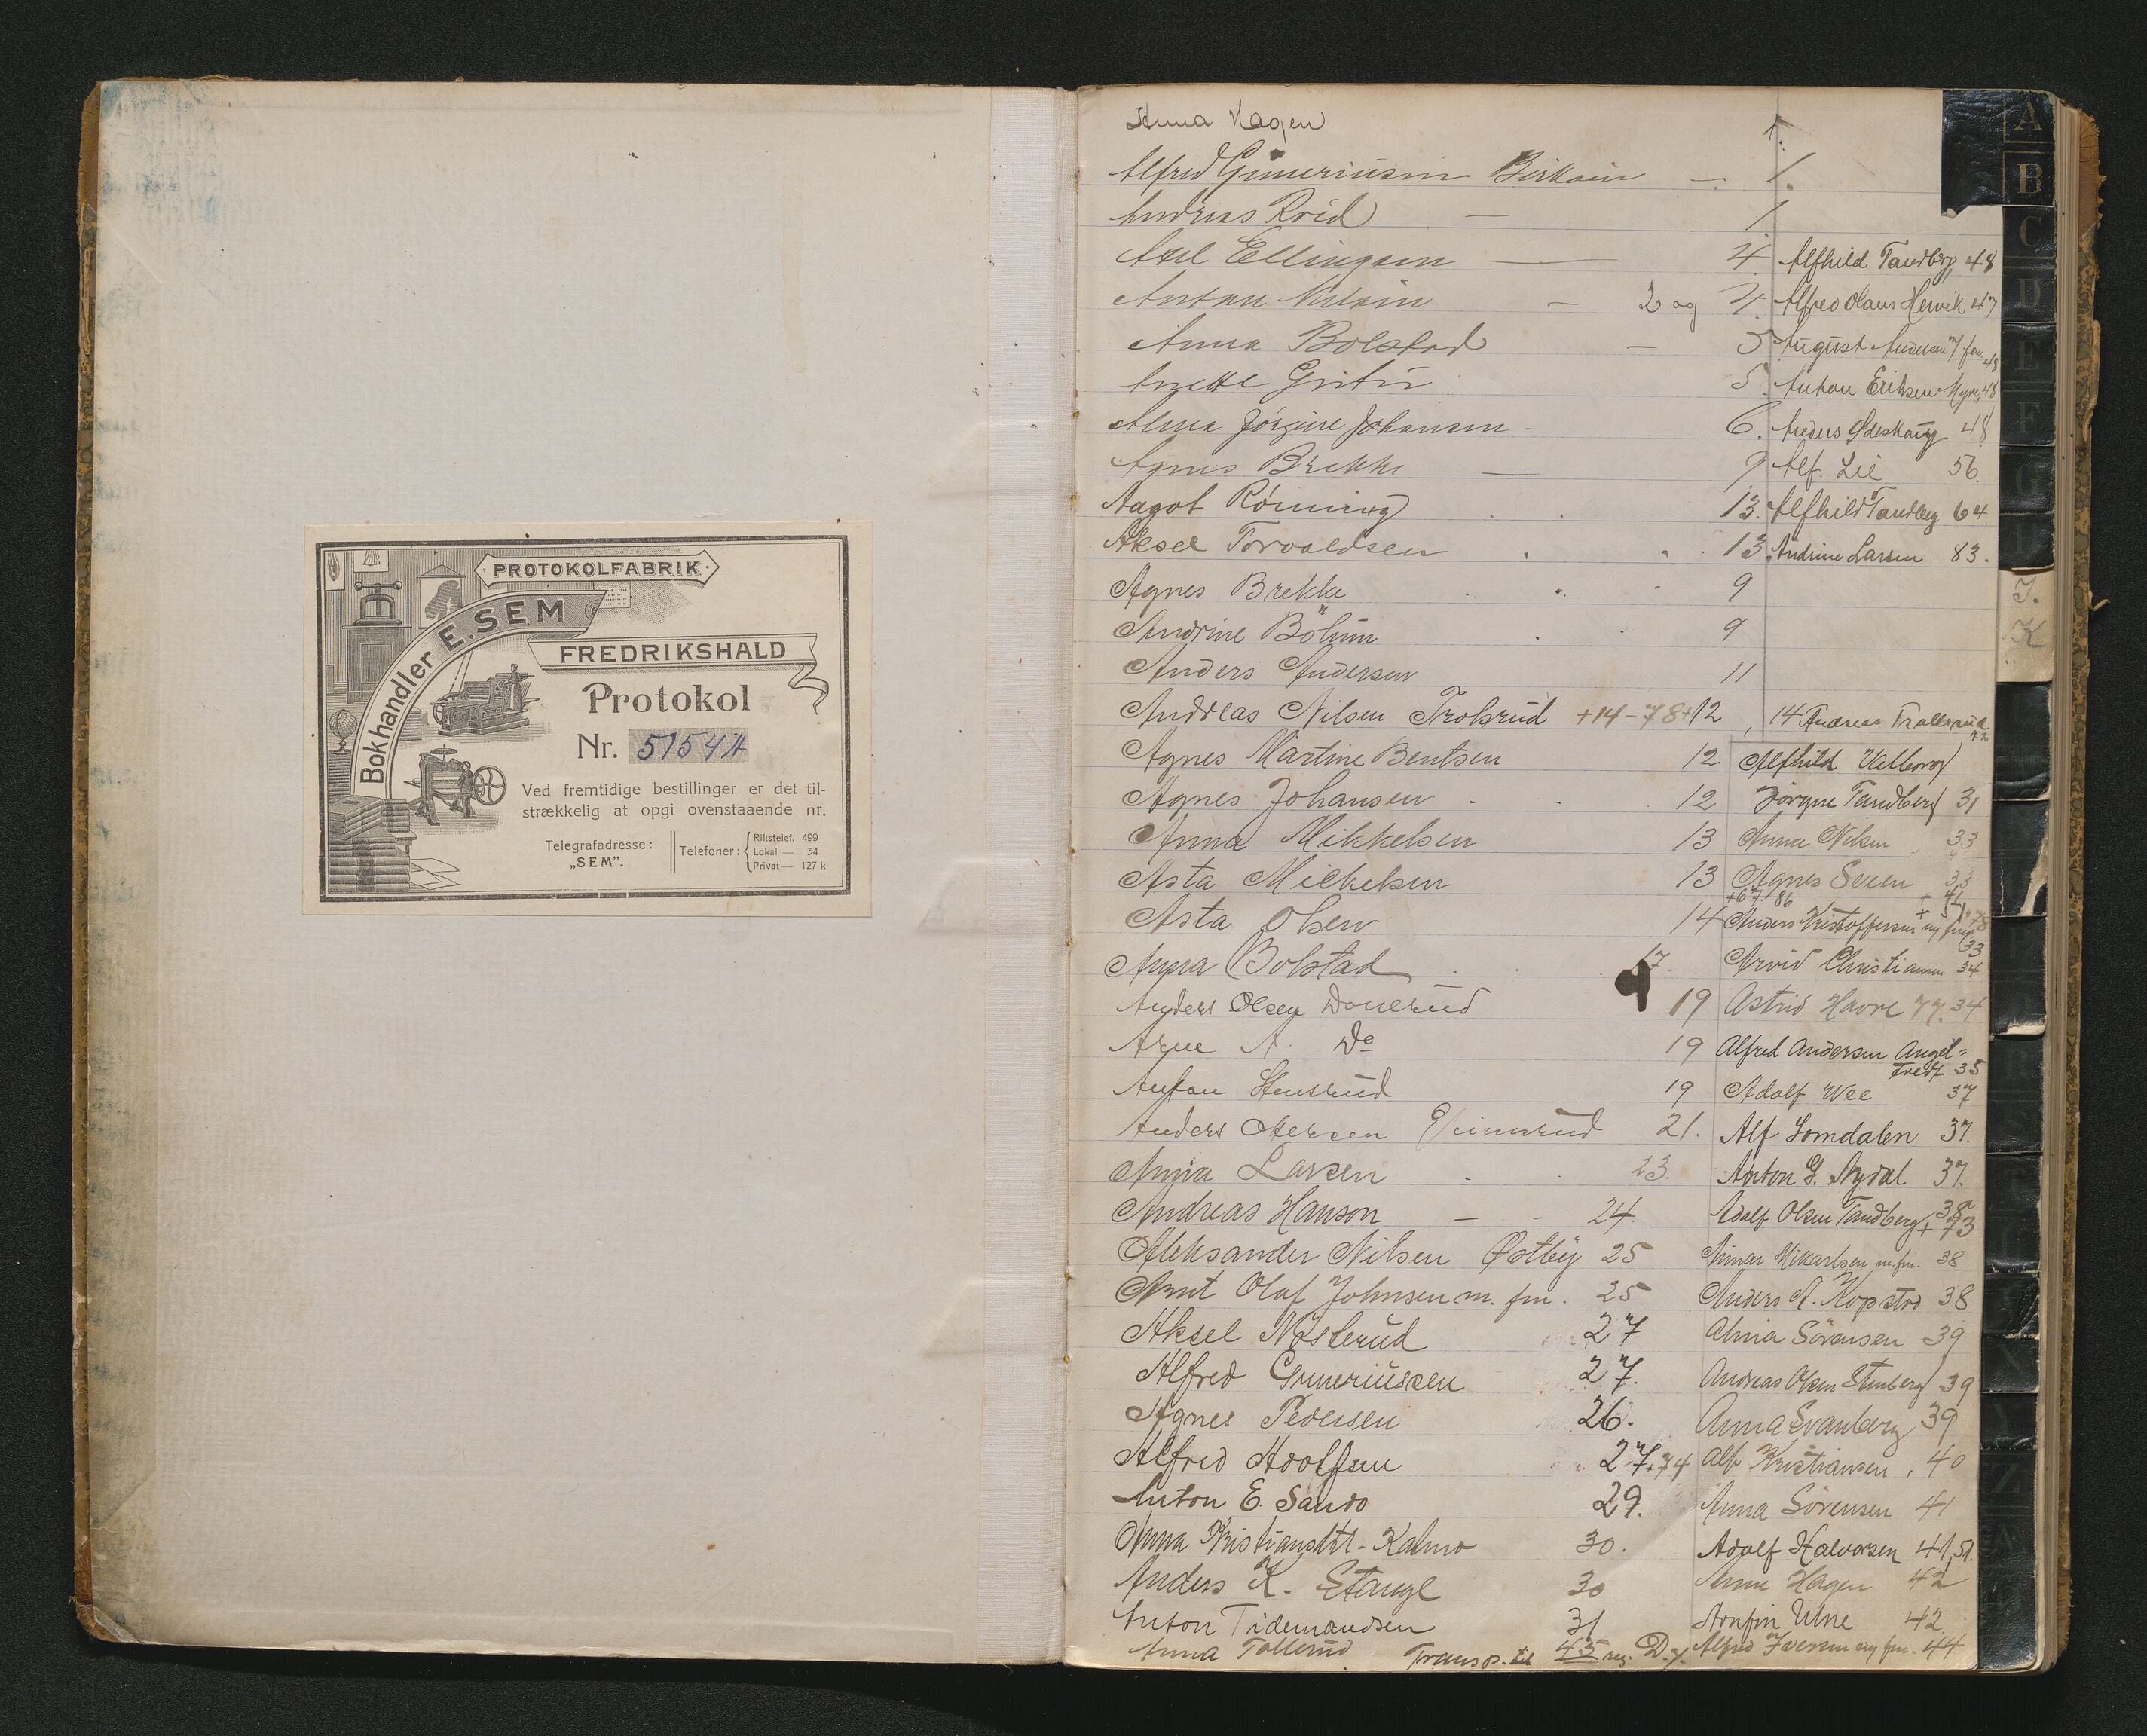 PROTOKOLFABRIK
Bokhandler E. SEM
FREDRIKSHALD
Protokol
Nr. 51544
Ved fremtidige bestillinger er det til-
strækkelig at opgi ovenstaaende nr.
Telegrafadresse:
„SEM".
Telefoner:
Rikstelef. 499
Lokal — 34
Privat — 127 k
Anna Hagen
Alfred Guneriusen 1.
Andreas 1
Axel Ellingsen 4.
Anton Nilsen 2 og 4.
Anna Bolstad 5
5.
Alma Jørgine Johansen 6.
Agnes Brekke 9
Aagot Rönning 13.
Aksel Torvaldsen 13
Agnes Brekke 9
Andrine Böhm 9
Anders Andersen 11
Andreas Nilsen Trolsrud +14-78+12, 14
Agnes Martine Bentsen 12
Agnes Johansen 12
Anna Mikkelsen 13
Asta Mikkelsen 13
Asta Olsen 14
Anna Bolstad 17.
Anders Olsen 19
Arne A. Do 19
Anton Stensrud 19
Anders 21.
Anna Larsen 23.
Andreas Hanson 24.
Aleksander Nilsen Østby 25
Arnt Olaf Johnsen m. fm. 25
Aksel Nösterud 27
Alfred Guneriussen 27.
Agnes Pedersen 26.
Alfred Adolfsen 27+74
Anton E. Sando 29.
Anna Kristiansdtt. Kalmo 30.
Anders K. Stange 30
Anton Tidemandsen 31
Anna Tollerud
Transp. til 45 reg. D.
Alfhild Tandberg 48
Alfred Olaus Hervik 47
August Andersen m/ fm 48
Anton Eriksen Myre 48
Anders 48
Alf. Lie 56
Alfhild Tandberg 64
Andrine Larsen 83.
Andreas Trollsrud 72
Alfhild Vilborg
Jörgine Tandberg 31
Anna Nilsen 33
Agnes 33
+67.86 + 41
+ 51.78
Anders Kristoffersen og fru 33
Arvid Christiansen 34
Astrid Havre 77. 34
Alfred Andersen Angel=
tvedt 35
Adolf Wee 37
Alf Lomdalen 37.
Anton G. Nydal 37.
Adolf Olsen Tandberg 38 + 73
Mikarlsen m. fm. 38
Anders A. Kopstad 38
Alma Sörensen 39
Andreas Olsen Stenberg 39
Anna Svanberg 39
Alf Kristiansen, 40
Anna Sörensen 41
Adolf Halvorsen 41, 51.
Anne Hagen 42
Arnfin Ulne 42.
Alfred Iversen og fm. 44
A
B
C
D
E
F
G
H
J.
K
R
X
Y
Z